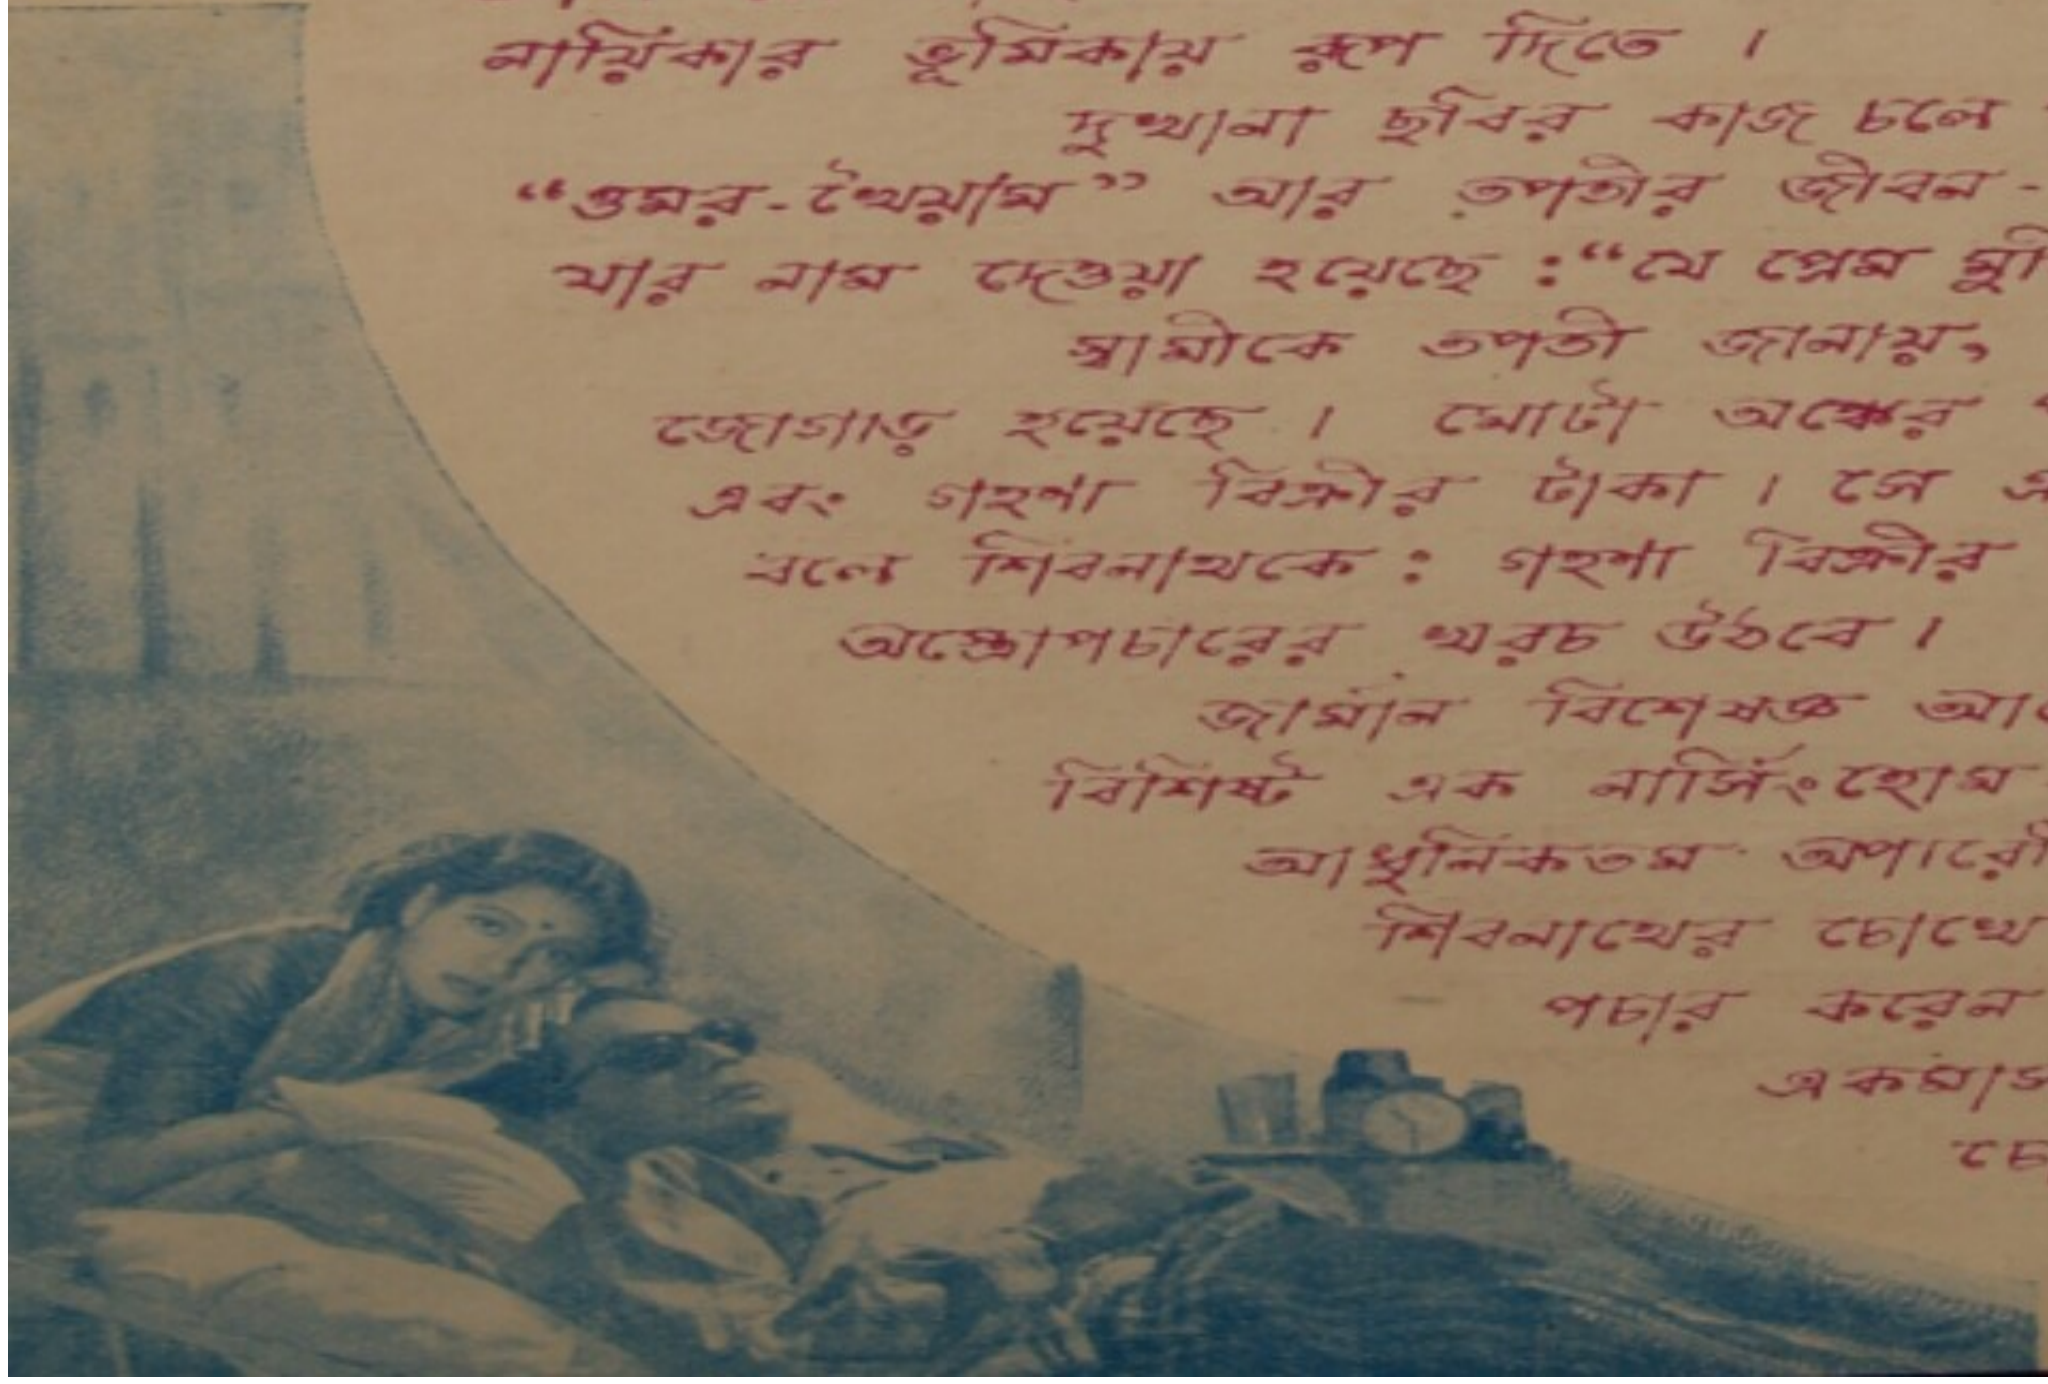 নায়িকার ভূমিকায় রূপ দিতে ।
দুখানা ছবির কাজ চলে
“ওমর-খৈয়াম” আর তপতীর জীবন -
যার নাম দেওয়া হয়েছে :“যে প্রেম
স্বামীকে তপতী জানায়,
জোগাড় হয়েছে । মোটা অঙ্কের
এবং গহণা বিক্রীর টাকা । সে
বলে শিবনাথকে : গহণা বিক্রীর
অস্ত্রোপচারের খরচ উঠবে ।
জার্মান বিশেষজ্ঞ
বিশিষ্ট এক নার্সিংহোম
আধুনিকতম
শিবনাথের চোখে
পচার করেন